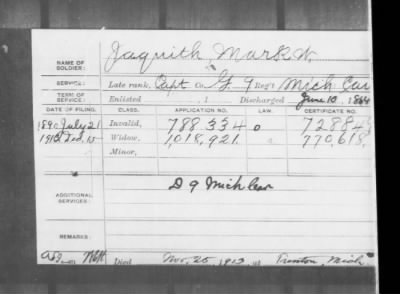 NAME OF SOLDIER: Jaquith, Mark W.
SERVICE: Late rank, Capt Co. G, 9 Reg't Mich Cav
TERM OF SERVICE: Enlisted , 1 Discharged June 10, 1864
DATE OF FILING. CLASS. APPLICATION NO. LAW. CERTIFICATE NO.
1890 July 21 Invalid, 788.334 0 72884
1913 Dec, 15 Widow, 1018,921. 770,618
Minor,
ADDITIONAL SERVICES: D 9 Mich Cav
REMARKS:
Died Nov. 25, 1913, at Trenton, Mich